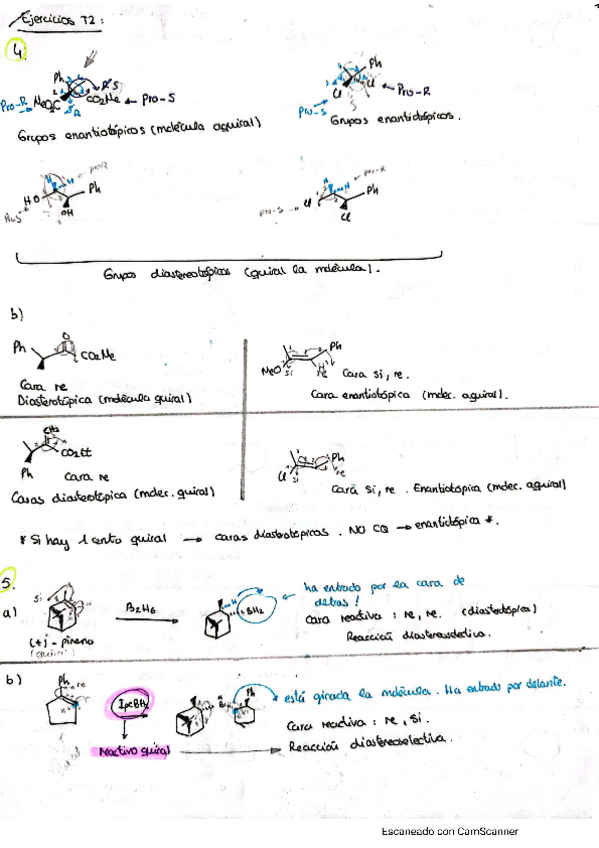 Ejercicios T2:
4.
Ph
S
Pro-R MeO2C CO2Me ← Pro-S
R
Grupos enantiotópicos (molécula aquiral)
Ph
Cl Cl ← Pro-R
Pro-S
Grupos enantiotópicos.
H H pro-R
HO Ph
ProS OH
H H pro-R
pro-S Cl Ph
Cl
Grupos diastereotópicos (quiral la molécula).
b)
O
Ph CO2Me
Cara re
Diasterotópica (molécula quiral)
Ph
MeO si H re Cara si, re.
Cara enantiotópica (molec. aquiral).
CH2
CO2Et
Ph Cara re
Caras diasteotópica (molec. quiral)
Ph
Cl si re
Cara si, re. Enantiotópica (molec. aquiral)
* Si hay 1 centro quiral → caras diastrotópicas. NO CQ → enantiotópica *.
5.
a) Si
B2H6
H
BH2
(+)-pineno
(quiral)
ha entrado por la cara de
detras!
Cara reactiva: re, re. (diastotópica)
Reacción diastereoselectiva.
b) Ph re
IpcBH2
H B H Ph
está girada la molécula. Ha entrado por delante.
Cara reactiva: re, si.
Reactivo quiral → Reacción diastereoselectiva.
Escaneado con CamScanner